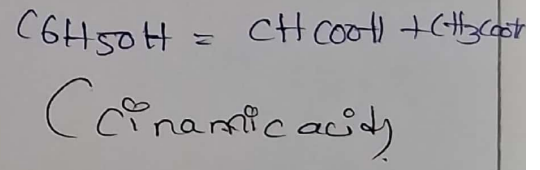 C6H5OH = CHCOOH + CH3COOH
(Cinamic acid)